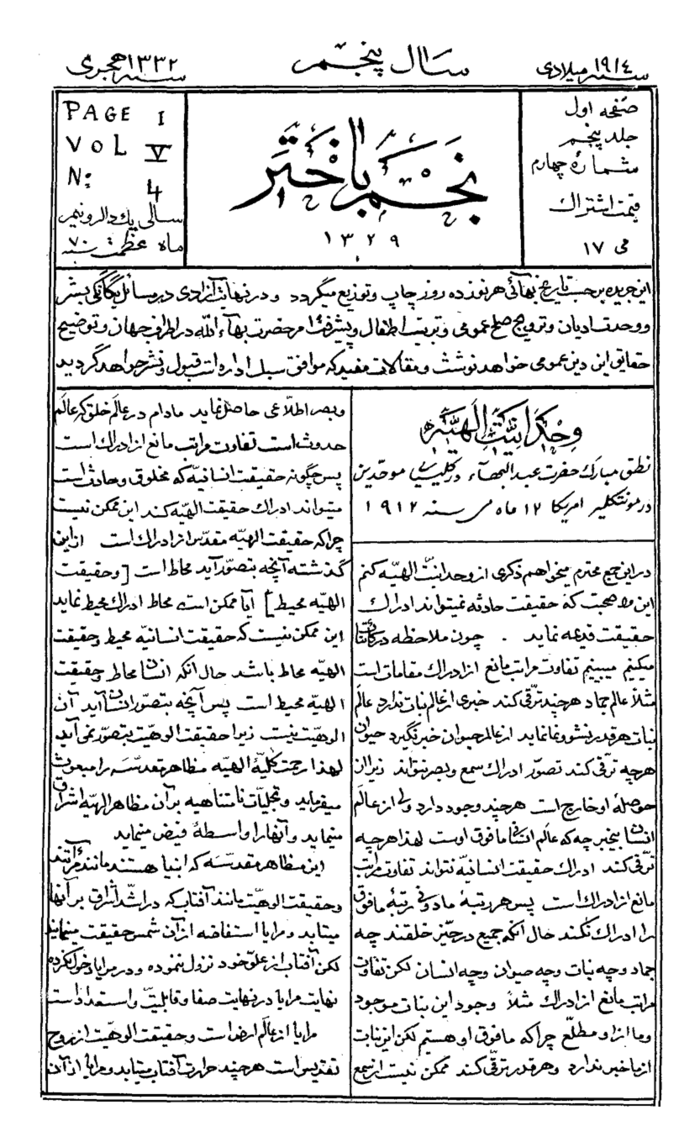 سنه ١٩١٤ میلادی
سال پنجم
سنه ١٣٣٢ هجری
صفحه اول
جلد پنجم
شمارهٔ چهارم
قیمت اشتراک
می ١٧
نجم باختر
١٣٢٩
PAGE 1
VOL V
Nº 4
سالی یک دالر و نیم
ماه عظمت سنه ٧٠
این جریده بر حسب تاریخ بهائی هر نوزده روز چاپ و توزیع میگردد و در نهایت آزادی در مسائل یگانگی بشر
و وحدت ادیان و ترویج صلح عمومی و تربیت اطفال و پیشرفت امر حضرت بهآءالله در اطراف جهان و توضیح
حقایق این دین عمومی خواهد نوشت و مقالات مفید که موافق سبل اداره است قبول و نشر خواهد گردید
وحدانیت الهیه
نطق مبارک حضرت عبدالبهآء در کلیسای موحدین
در مونتکلیر امریکا ١٢ ماه می سنه ١٩١٢
در این جمع محترم میخواهم ذکری از وحدانیت الهیه کنم
این واضحست که حقیقت حادثه نمیتواند ادراک
حقیقت قدیمه نماید . چون ملاحظه در کائنات
میکنیم میبینیم تفاوت مراتب مانع از ادراک مقامات است
مثلا عالم جماد هر چند ترقی کند خبری از عالم نبات ندارد عالم
نبات هر قدر نشو و نما نماید از عالم حیوان خبر نگیرد حیوان
هر چه ترقی کند تصور ادراک سمع و بصر نتواند زیرا از
حوصلهٔ او خارج است هر چند وجود دارد ولی از عالم
انسان بیخبر چه که عالم انسانی مافوق اوست لهذا هر چه
ترقی کند ادراک حقیقت انسانیه نتواند تفاوت مراتب
مانع از ادراک است پس هر رتبهٔ مادونی رتبهٔ مافوق
را ادراک نکند حال آنکه جمیع در حیز خلقند چه
جماد و چه نبات و چه حیوان و چه انسان لکن تفاوت
مراتب مانع از ادراک مثلا وجود این نبات موجود
و ما از او مطلع چرا که مافوق او هستیم لکن این نبات
از ما خبر ندارد و هر قدر ترقی کند ممکن نیست از سمع
و بصر اطلاعی حاصل نماید مادام در عالم خلق که عالم
حدوث است تفاوت مراتب مانع از ادراک است
پس چگونه حقیقت انسانیه که مخلوق و حادث است
میتواند ادراک حقیقت الهیه کند این ممکن نیست
چرا که حقیقت الهیه مقدس از ادراک است از این
گذشته آنچه بتصور آید محاط است [و حقیقت
الهیه محیط] آیا ممکن است محاط ادراک محیط نماید
این ممکن نیست که حقیقت انسانیه محیط و حقیقت
الهیه محاط باشد حال آنکه انسان محاط و حقیقت
الهیه محیط است پس آنچه بتصور انسان آید آن
الوهیت نیست زیرا حقیقت الوهیت بتصور نمی آید
لهذا رحمت کلیهٔ الهیه مظاهر مقدسه را مبعوث
میفرماید و تجلیات نامتناهیه بر آن مظاهر الهیه اشراق
مینماید و آنها را واسطهٔ فیض مینماید
این مظاهر مقدسه که انبیا هستند مانند مرآتند
و حقیقت الوهیت مانند آفتاب که در اشد اشراق بر آنها
میتابد و مرایا استفاضه از آن شمس حقیقت مینمایند
لکن آفتاب از علو خود نزول ننموده و در مرایا دخول نکرده
نهایت مرایا در نهایت صفا و قابلیت و استعداد است
مرایا از عالم ارض است و حقیقت الوهیت از اوج
تقدیس است هر چند حرارت آفتاب میتابد و مرایا از آن